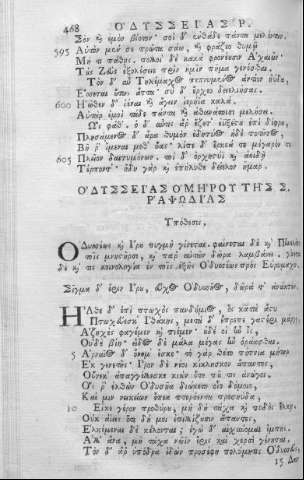 468 Ὀ΄ΔΥΣΣΕΙΑΣ Ρ.
Σὸν καὶ ἐμὸν βίοτον· σοὶ δ' ἐνθάδε πάντα μελόντων.
595 Αὐτὸν μέν σε πρῶτα σάω, καὶ φράζεο θυμῷ
Μή τι πάθῃς. πολλοὶ δὲ κακὰ φρονέουσιν Ἀχαιῶν·
Τοὺς Ζεὺς ἐξολέσειε πρὶν ἡμῖν πῆμα γενέσθαι.
Τὸν δ' αὖ Τηλέμαχος πεπνυμένος ἀντίον ηὔδα,
Ἔσσεται οὕτως ἄττα· σὺ δ' ἔρχεο δειελιήσας.
600 Ἠῶθεν δ' ἰέναι καὶ ἄγειν ἱερήϊα καλά.
Αὐτὰρ ἐμοὶ τάδε πάντα καὶ ἀθανάτοισι μελήσει.
Ὣς φάθ', ὁ δ' αὖτις ἄρ' ἕζετ' ἐϋξέστου ἐπὶ δίφρου,
Πλησάμενος δ' ἄρα θυμὸν ἐδητύος ἠδὲ ποτῆτος,
Βῆ ῥ' ἴμεναι μεθ' ὕας· λίπε δ' ἕρκεά τε μέγαρόν τε
605 Πλεῖον δαιτυμόνων. τοὶ δ' ὀρχηστυῖ καὶ ἀοιδῇ
Τέρποντ'· ἤδη γὰρ καὶ ἐπήλυθε δείελον ἦμαρ.
Ὀ΄ΔΥΣΣΕΙΑΣ Ὁ΄ΜΗΡΟΥ ΤΗΣ Σ.
Ῥ΄ΑΨΩΔΙΑΣ
Ὑπόθεσις.
Ὀδυσσέως καὶ Ἴρου πυγμὴ γίνεται. φαίνεται δὲ καὶ Πηνελόπη
τοῖς μνηστῆρσι, καὶ παρ' αὐτῶν δῶρα λαμβάνει.
δὲ καί τις κοινολογία ἐν τοῖς ἑξῆς Ὀδυσσέως πρὸς Εὐρύμαχον.
Σίγμα δ' ἔρις Ἴρου, Ὀδυσῆος, δῶρά τ' ἀνάκτων.
Ἦλθε δ' ἐπὶ πτωχὸς πανδήμιος, ὃς κατὰ ἄστυ
Πτωχεύεσκ' Ἰθάκης, μετὰ δ' ἔπρεπε γαστέρι μάργῃ,
Ἀζηχὲς φαγέμεν καὶ πιέμεν· οὐδέ οἱ ἦν ἲς,
Οὐδὲ βίη· εἶδος δὲ μάλα μέγας ἦν ὁράασθαι.
5 Ἀρναῖος δ' ὄνομ' ἔσκε· τὸ γὰρ θέτο πότνια μήτηρ
Ἐκ γενετῆς· Ἶρον δὲ νέοι κίκλησκον ἅπαντες,
Οὕνεκ' ἀπαγγέλλεσκε κιὼν ὅτε πού τις ἀνώγοι.
Ὅς ῥ' ἐλθὼν Ὀδυσῆα διώκετο οἷο δόμοιο,
Καί μιν νεικείων ἔπεα πτερόεντα προσηύδα,
10 Εἶκε γέρον προθύρου, μὴ δὴ τάχα καὶ ποδὸς ἕλκῃ.
Οὐκ ἀΐεις ὅτι δή μοι ἐπιλλίζουσιν ἅπαντες,
Ἑλκέμεναι δὲ κέλονται; ἐγὼ δ' αἰσχύνομαι ἔμπης.
Ἀλλ' ἄνα, μὴ τάχα νῶϊν ἔρις καὶ χερσὶ γένηται.
Τὸν δ' ἄρ' ὑπόδρα ἰδὼν προσέφη πολύμητις Ὀδυσσεύς,
15 Δαι-